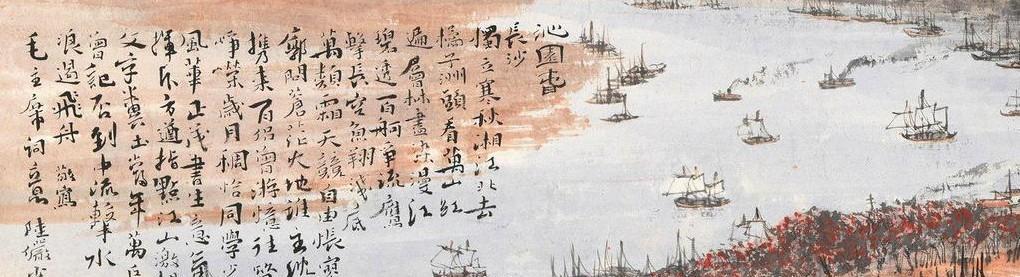 沁園春
長沙
獨立寒秋湘江北去
橘子洲頭看萬山紅
遍層林盡染漫江
碧透百舸爭流鷹
擊長空魚翔淺底
萬類霜天競自由悵寥
廓問蒼茫大地誰主沉
攜來百侶曾游憶往昔
崢嶸歲月稠恰同學少
風華正茂書生意氣
揮斥方遒指點江山激揚
文字糞土當年萬户
曾記否到中流擊水
浪遏飛舟 敬寫
毛主席詞意 陸儼少